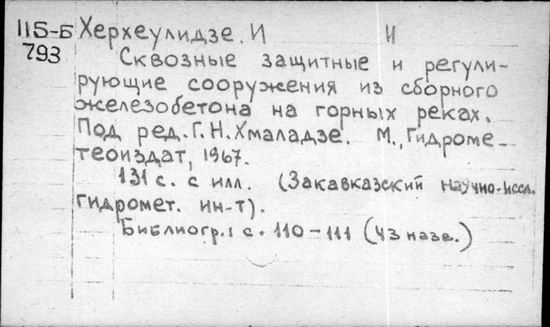 115-Б Херхеулидзе. И И
793
Сквозные защитные и регули-
рующие сооружения из сборного
железобетона на горных реках.
Под ред. Г. Н. Хмаладзе. М., Гидроме-
теоиздат, 1967.
131 с. с илл. (Закавказский научно-иссл.
гидромет. ин-т).
Библиогр.: с. 110-111 (43 назв.)